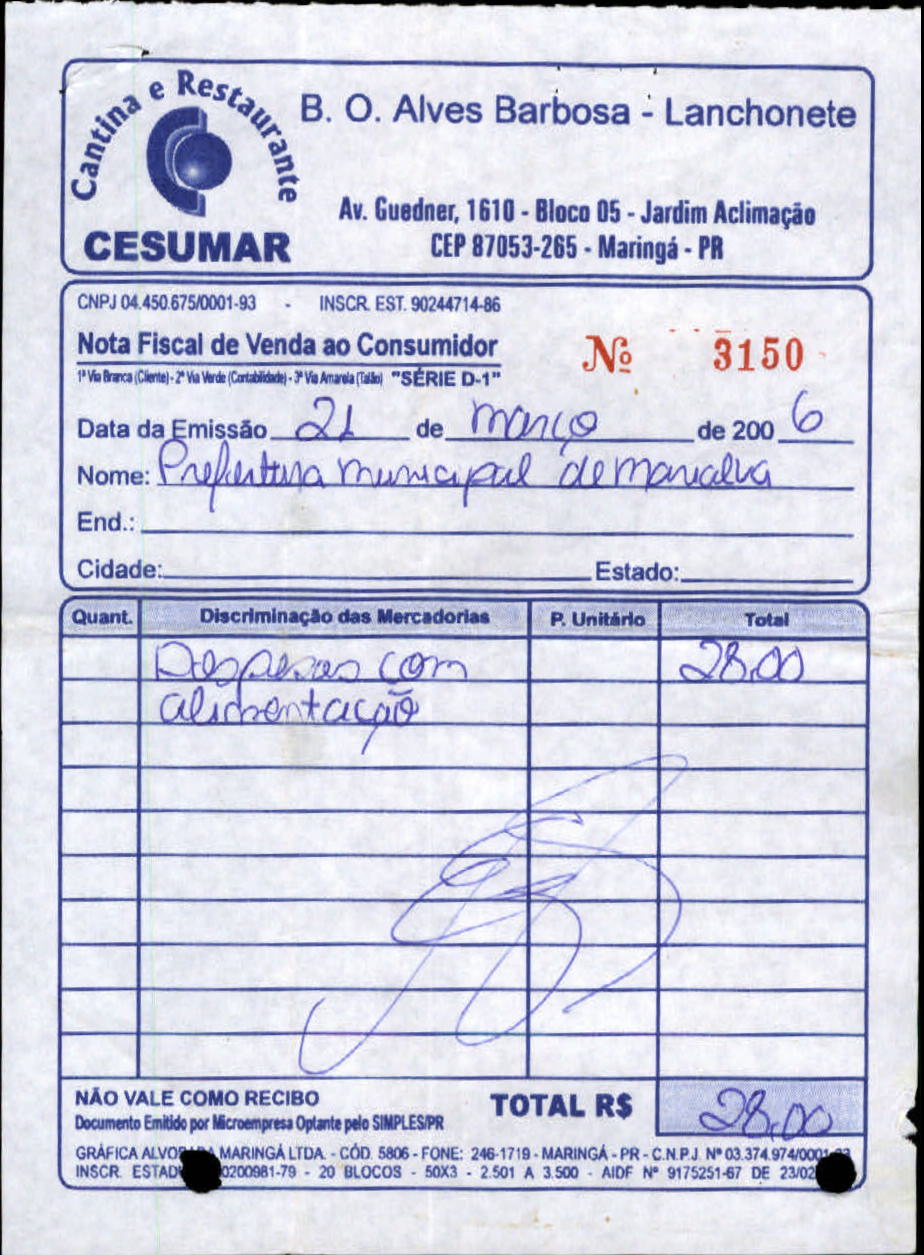 Cantina e Restaurante
CESUMAR
B. O. Alves Barbosa - Lanchonete
Av. Guedner, 1610 - Bloco 05 - Jardim Aclimação
CEP 87053-265 - Maringá - PR
CNPJ 04.450.675/0001-93 - INSCR. EST. 90244714-86
Nota Fiscal de Venda ao Consumidor Nº 3150
1ª Via Branca (Cliente) - 2ª Via Verde (Contabilidade) - 3ª Via Amarela (Talão) "SÉRIE D-1"
Data da Emissão 21 de março de 2006
Nome: Prefeitura municipal de marialva
End.:
Cidade: Estado:
Quant. Discriminação das Mercadorias P. Unitário Total
Despesas com 28,00
alimentação
NÃO VALE COMO RECIBO
Documento Emitido por Microempresa Optante pelo SIMPLES/PR
TOTAL R$ 28,00
GRÁFICA MARINGÁ LTDA. - CÓD. 5806 - FONE: 246-1719 - MARINGÁ - PR - C.N.P.J. Nº 03.374.974/0001
INSCR. 0200981-79 - 20 BLOCOS - 50X3 - 2.501 A 3.500 - AIDF Nº 9175251-67 DE 23/02